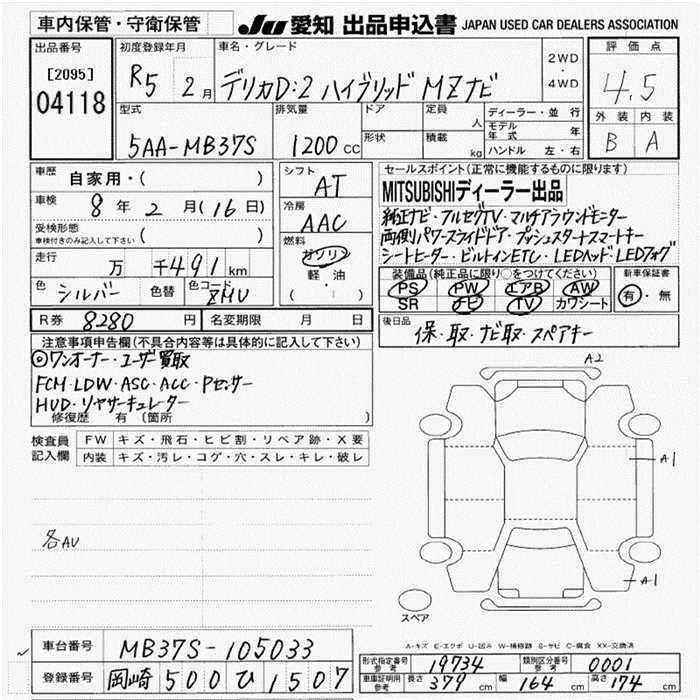 車内保管・守衛保管 JU 愛知 出品申込書 JAPAN USED CAR DEALERS ASSOCIATION
出品番号 [2095] 04118
初度登録年月 R5 2月
車名・グレード デリカD:2 ハイブリッド MZナビ 2WD・4WD
評価点 4.5
外装 B 内装 A
型式 5AA-MB37S 排気量 1200cc
ドア 形状 定員 人 積載 kg
ディーラー・並行
モデル年式 年
ハンドル 左・右
車歴 自家用・( )
車検 8年 2月(16日)
受検形態 車検付きのみ記入して下さい ( )
走行 万 千491km
色 シルバー 色替 色コード ZMU
シフト AT
冷房 AAC
燃料 ガソリン 軽・油 ( ・ )
セールスポイント(正常に機能するものに限ります)
MITSUBISHIディーラー出品
純正ナビ・フルセグTV・マルチアラウンドモニター
両側パワースライドドア・プッシュスタートスマートキー
シートヒーター・ビルトインETC・LEDヘッド・LEDフォグ
装備品(純正品に限り○をつけてください) 新車保証書
PS PW エアB AW 有・無
SR ナビ TV カワシート
R券 8280円 名変期限 月 日
後日品 保・取・ナビ取・スペアキー
注意事項申告欄(不具合内容等は具体的に記入して下さい)
◎ワンオーナー・ユーザー買取
FCM・LDW・ASC・ACC・Pセンサー
HUD・リヤサーキュレーター
修復歴 有(箇所 )
検査員記入欄 FW キズ・飛石・ヒビ割・リペア跡・X要
内装 キズ・汚レ・コゲ・穴・スレ・キレ・破レ
各AU
A2
A1
A1
スペア
A-キズ E-エクボ U-凹み W-補修跡 S-サビ C-腐食 XX-交換済
車台番号 MB37S-105033
登録番号 岡崎 500 ひ 1507
形式指定番号 参考 19734 類別区分番号 参考 0001
車庫証明用 参考 長さ 379cm 幅 164cm 高さ 174cm